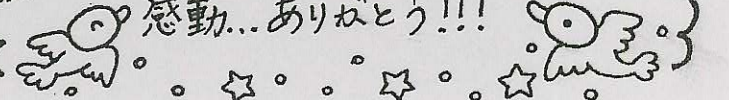 感動...ありがとう!!!